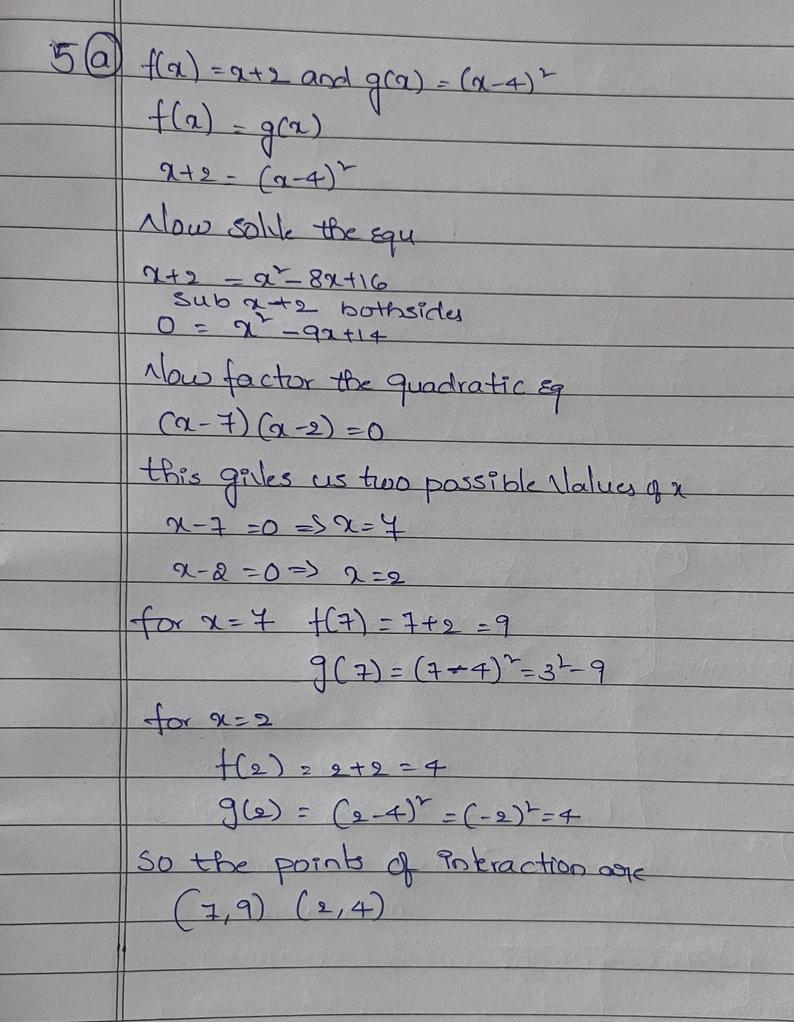 5 (a) f(x) = x+2 and g(x) = (x-4)²
f(x) = g(x)
x+2 = (x-4)²
Now solve the equ
x+2 = x² - 8x+16
sub x+2 bothsides
0 = x² - 9x+14
Now factor the quadratic Eq
(x-7) (x-2) = 0
this gives us two possible Values of x
x-7 = 0 => x = 7
x-2 = 0 => x = 2
for x = 7 f(7) = 7+2 = 9
g(7) = (7-4)² = 3² - 9
for x = 2
f(2) = 2+2 = 4
g(2) = (2-4)² = (-2)² = 4
So the points of interaction are
(7,9) (2,4)